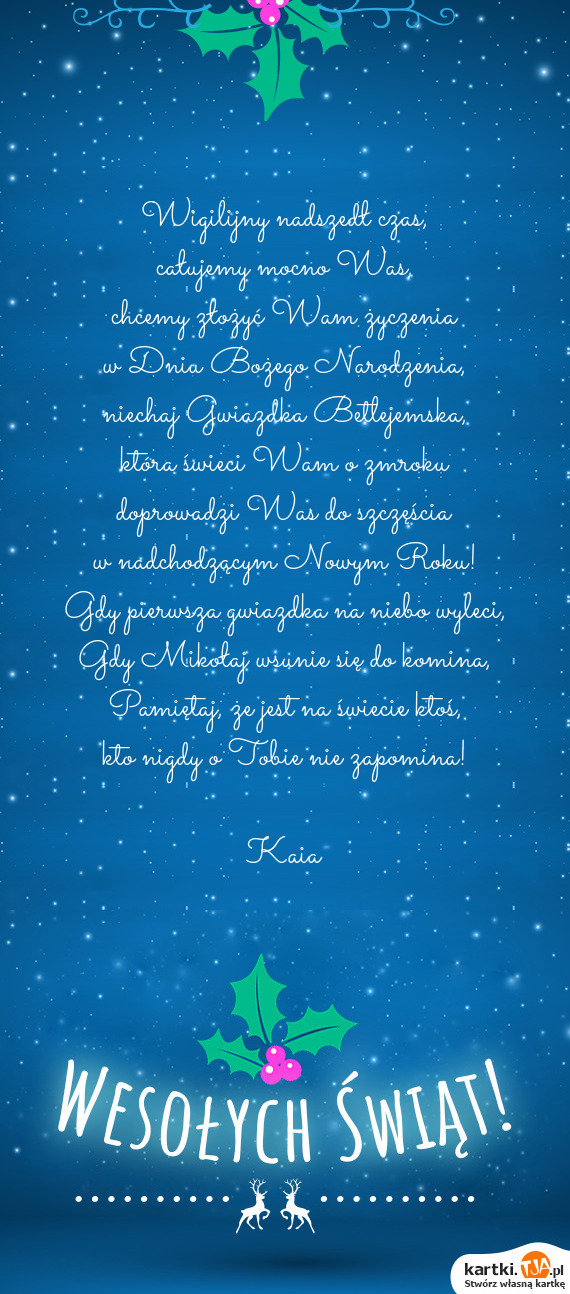 Wigilijny nadszedł czas,
całujemy mocno Was,
chcemy złożyć Wam życzenia
w Dniu Bożego Narodzenia,
niechaj Gwiazdka Betlejemska,
która świeci Wam o zmroku
doprowadzi Was do szczęścia
w nadchodzącym Nowym Roku!
Gdy pierwsza gwiazdka na niebo wyleci,
Gdy Mikołaj wsunie się do komina,
Pamiętaj, że jest na świecie ktoś,
kto nigdy o Tobie nie zapomina!
Kaia
Wesołych Świąt!
kartki.TJA.pl
Stwórz własną kartkę